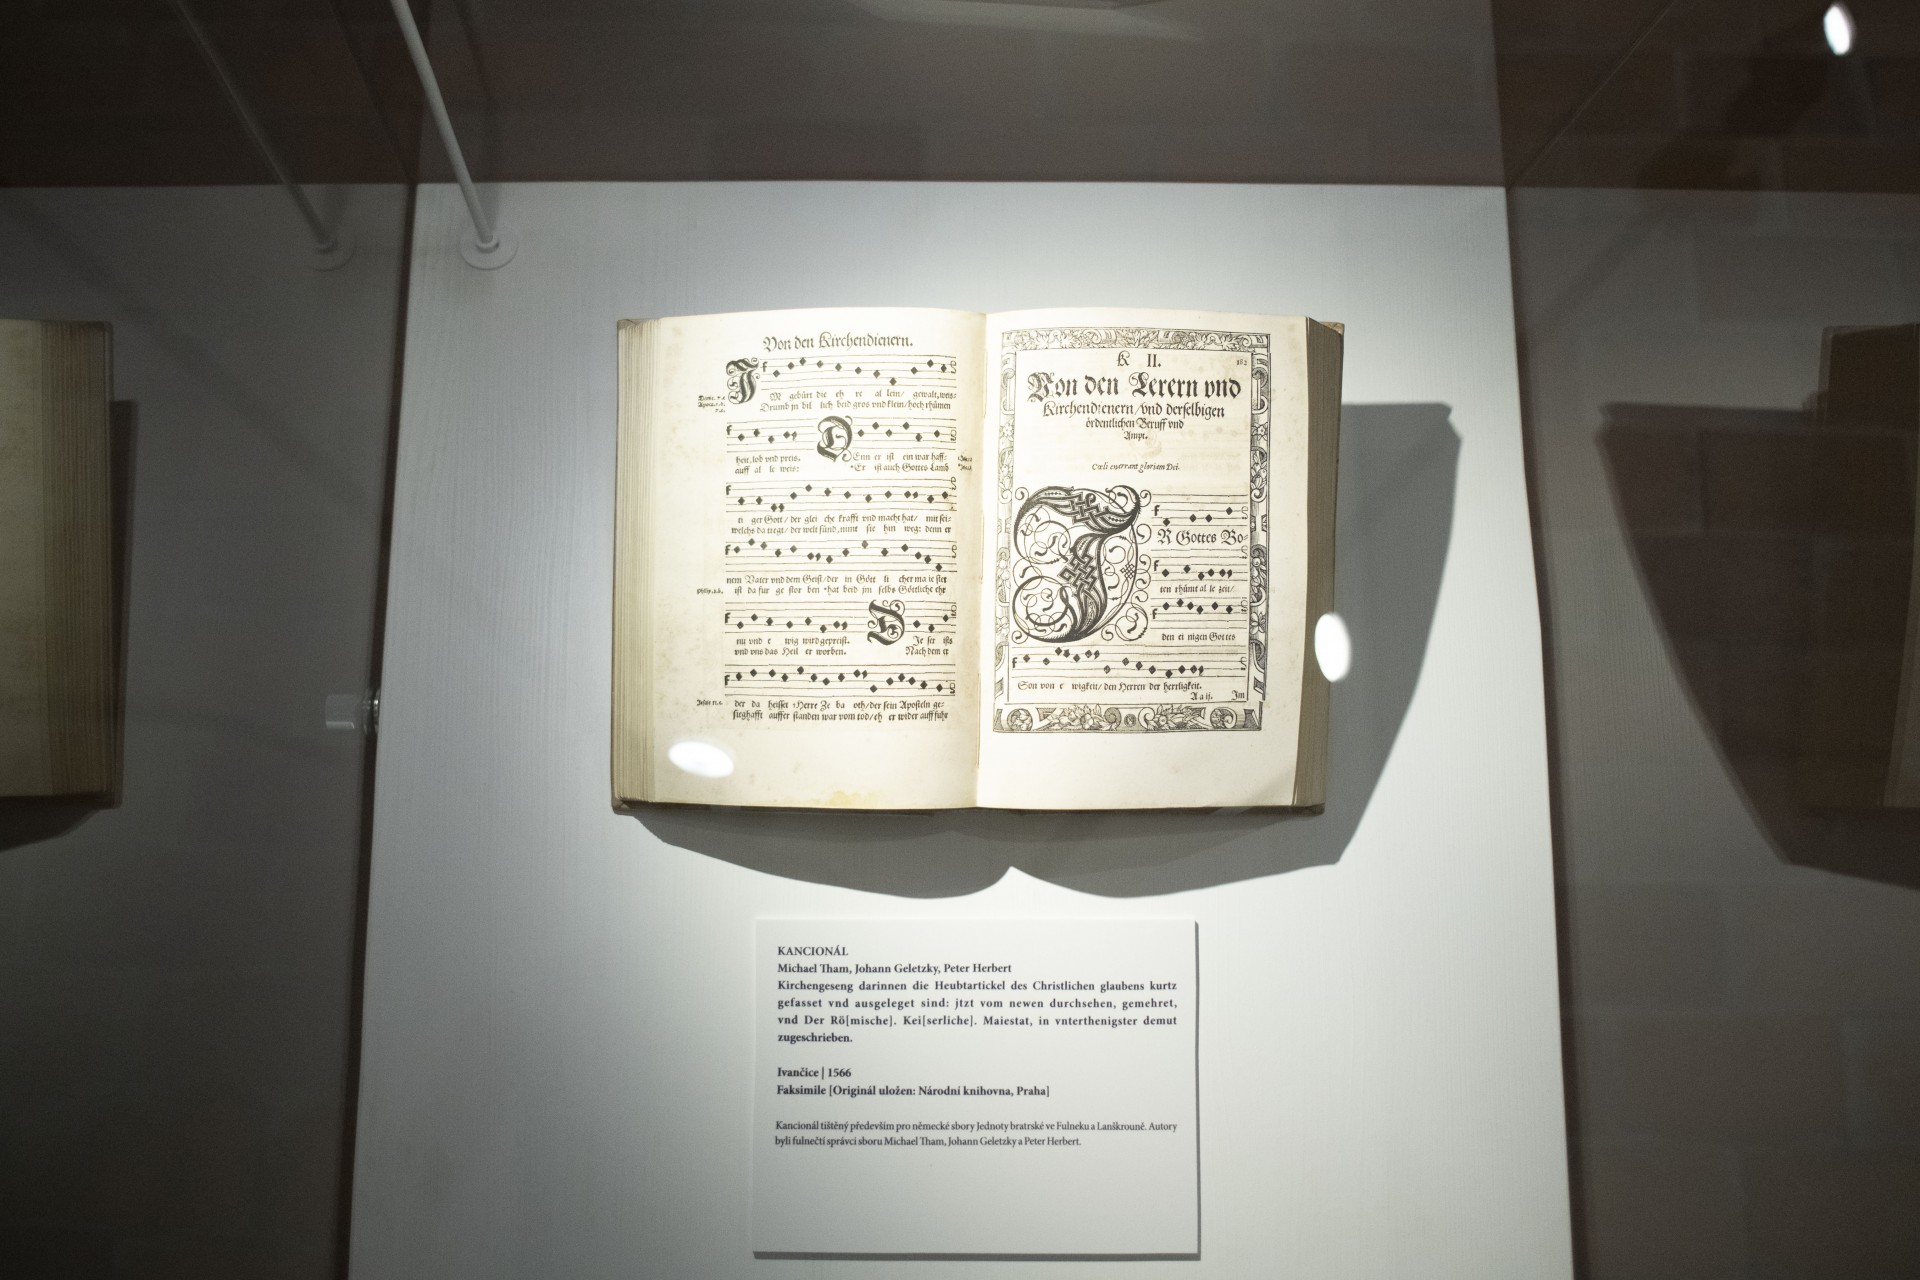 Von den Kirchendienern.
JM gebürt die eh re al lein/ gewalt, weis-
Drumb jn bil lich beid gros vnd klein/hoch rhümen
heit, lob vnd preis. DEnn er ist ein war haff-
auff al le weis: Er ist auch Gottes Lamb
ti ger Gott/ der glei che krafft vnd macht hat/ mit sei-
welchs da tregt/ der welt sünd, nimt sie hin weg: denn er
nem Vater vnd dem Geist/der in Gött li cher ma ie stet
ist da für ge stor ben hat beid jm selbs Göttliche ehr
nu vnd e wig wird gepreist. DJe ser ists
vnd vns das Heil er worben. Nach dem er
der da heisset Herr Ze ba oth/der sein Aposteln ge-
sieghafft aufferstanden war vom tod/eh er wider auff fuhr
K II. 182
Von den Lerern vnd
Kirchendienern/vnd derselbigen
ördentlichen Beruff vnd
Ampt.
Cœli enarrant gloriam Dei.
JR Gottes Bo-
ten rhümt al le zeit/
den ei nigen Gottes
Son von e wigkeit/ den Herren der herrligkeit.
A a ij. Jm
KANCIONÁL
Michael Tham, Johann Geletzky, Peter Herbert
Kirchengeseng darinnen die Heubtartickel des Christlichen glaubens kurtz
gefasset vnd ausgeleget sind: jtzt vom newen durchsehen, gemehret,
vnd Der Rö[mische]. Kei[serliche]. Maiestat, in vnterthenigster demut
zugeschrieben.
Ivančice | 1566
Faksimile [Originál uložen: Národní knihovna, Praha]
Kancionál tištěný především pro německé sbory Jednoty bratrské ve Fulneku a Lanškrouně. Autory
byli fulnečtí správci sboru Michael Tham, Johann Geletzky a Peter Herbert.